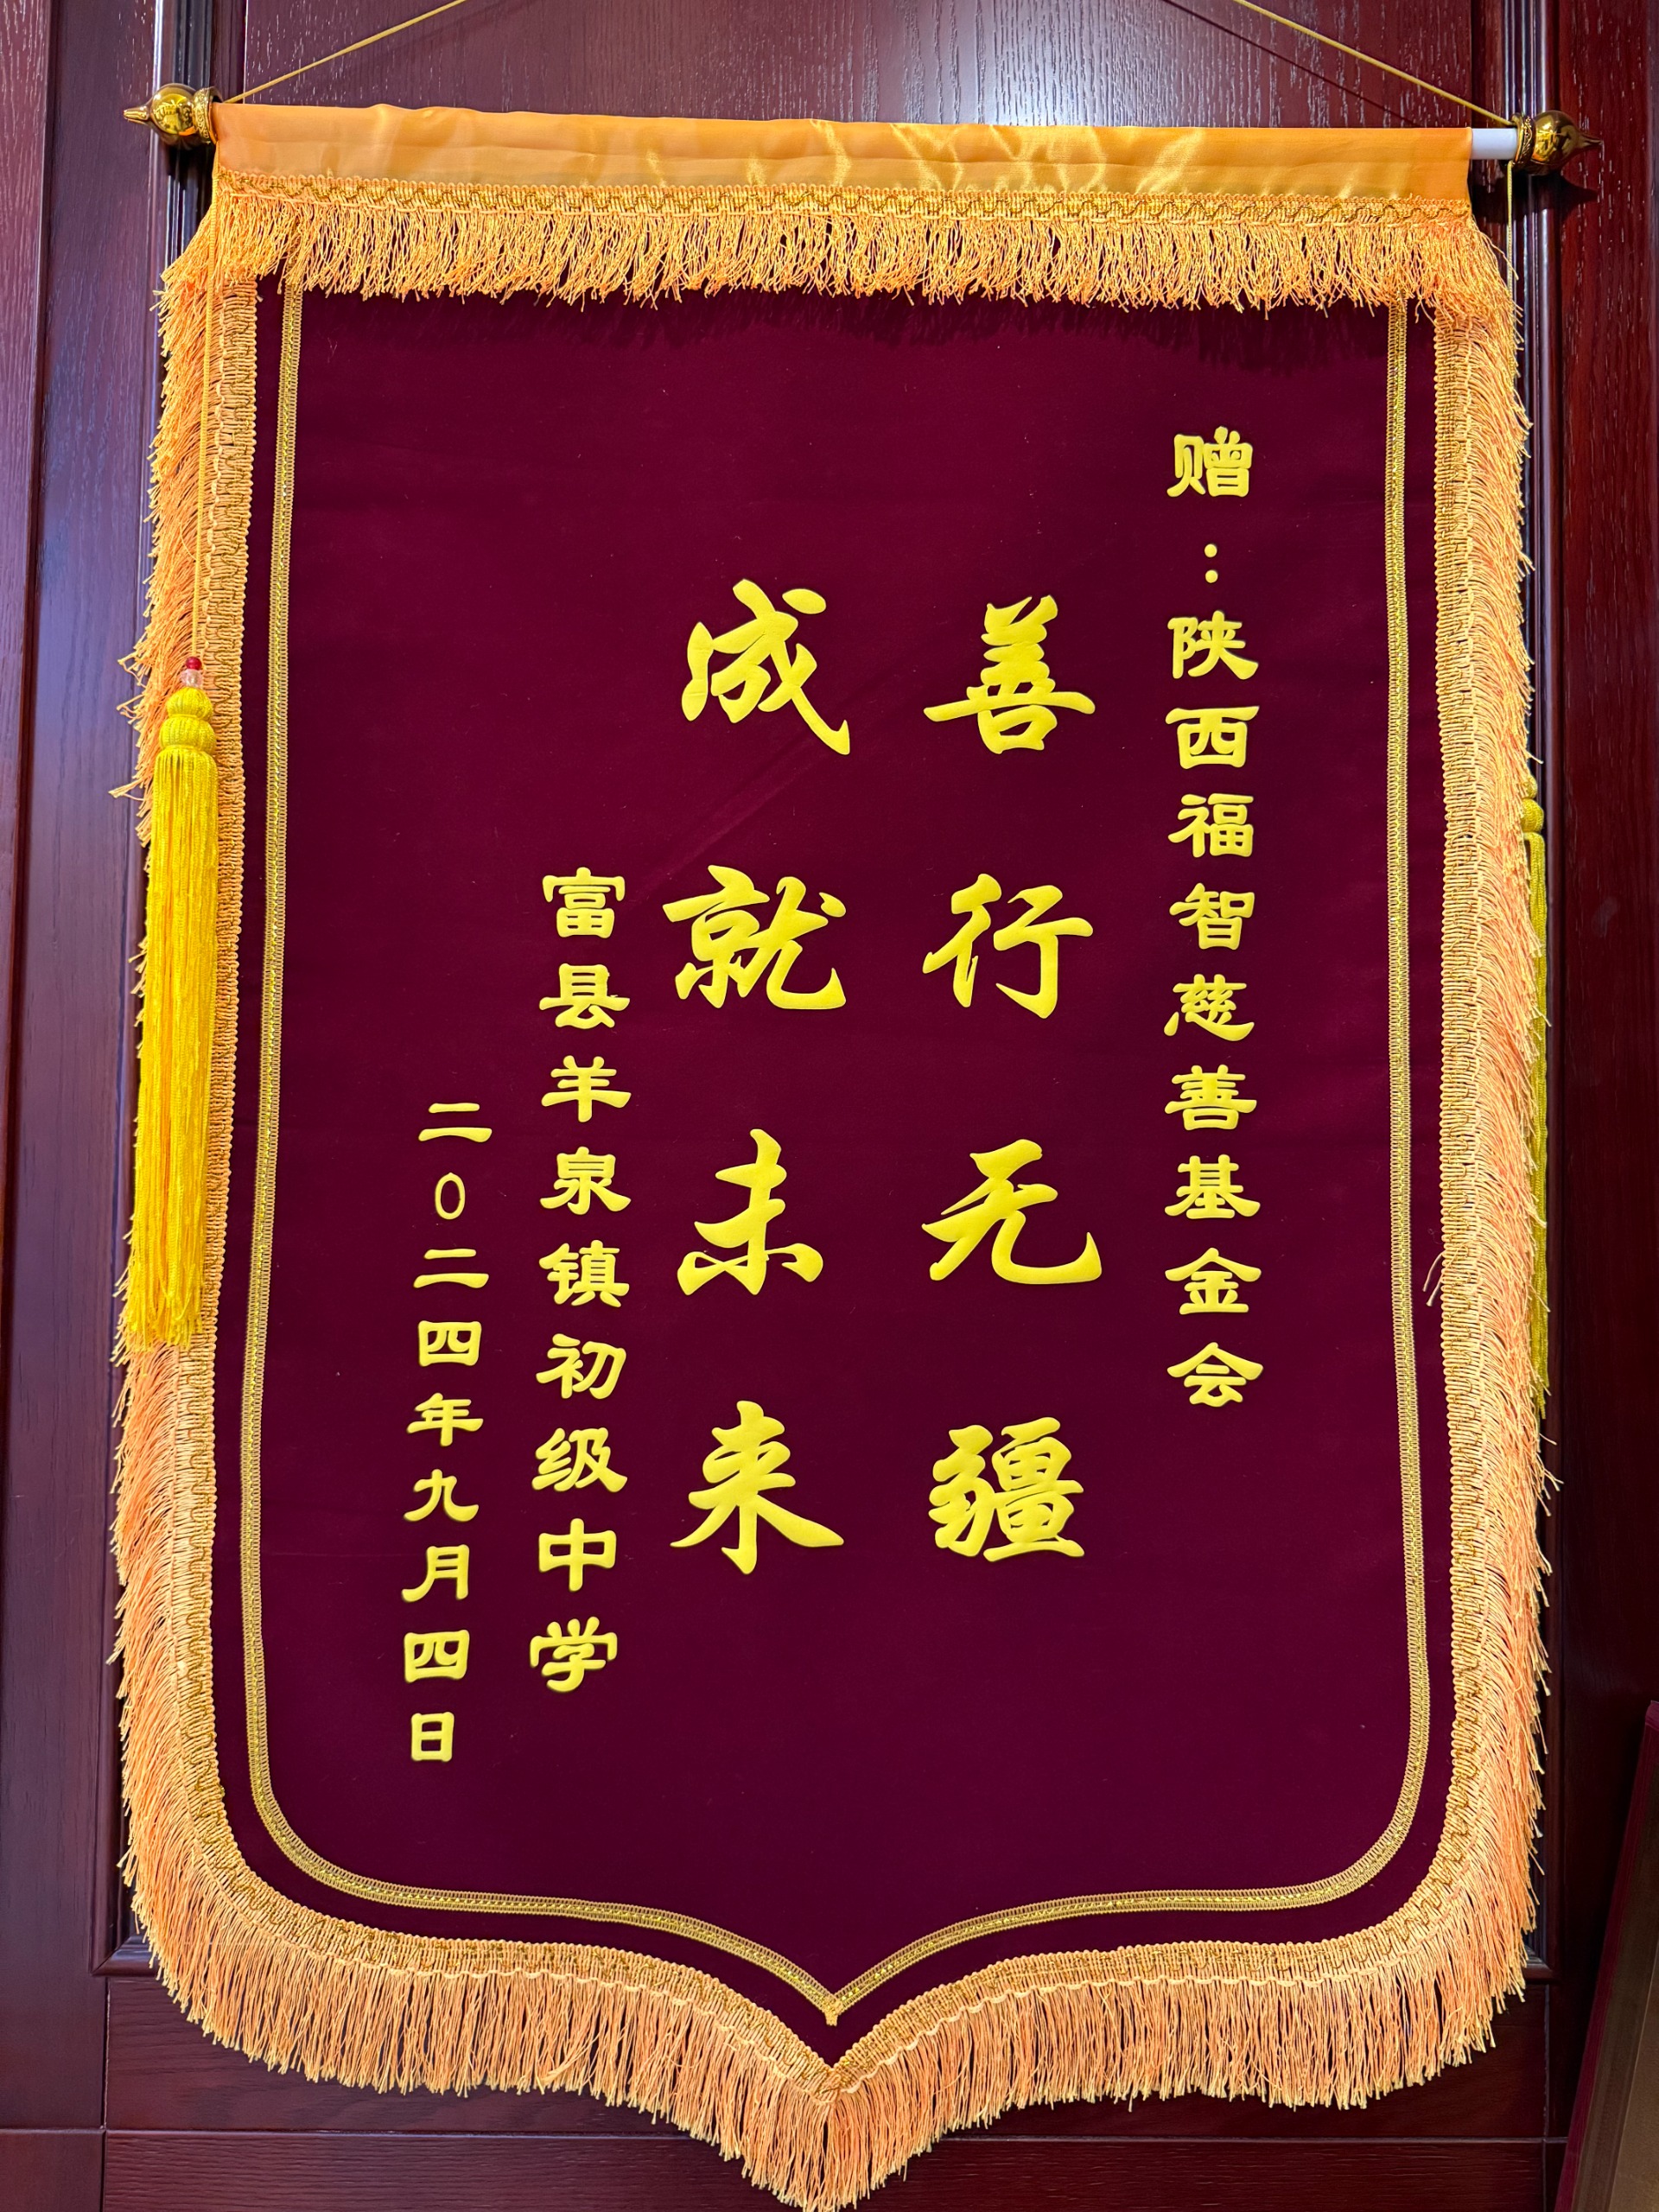 赠：陕西福智慈善基金会
善行无疆
成就未来
富县羊泉镇初级中学
二0二四年九月四日